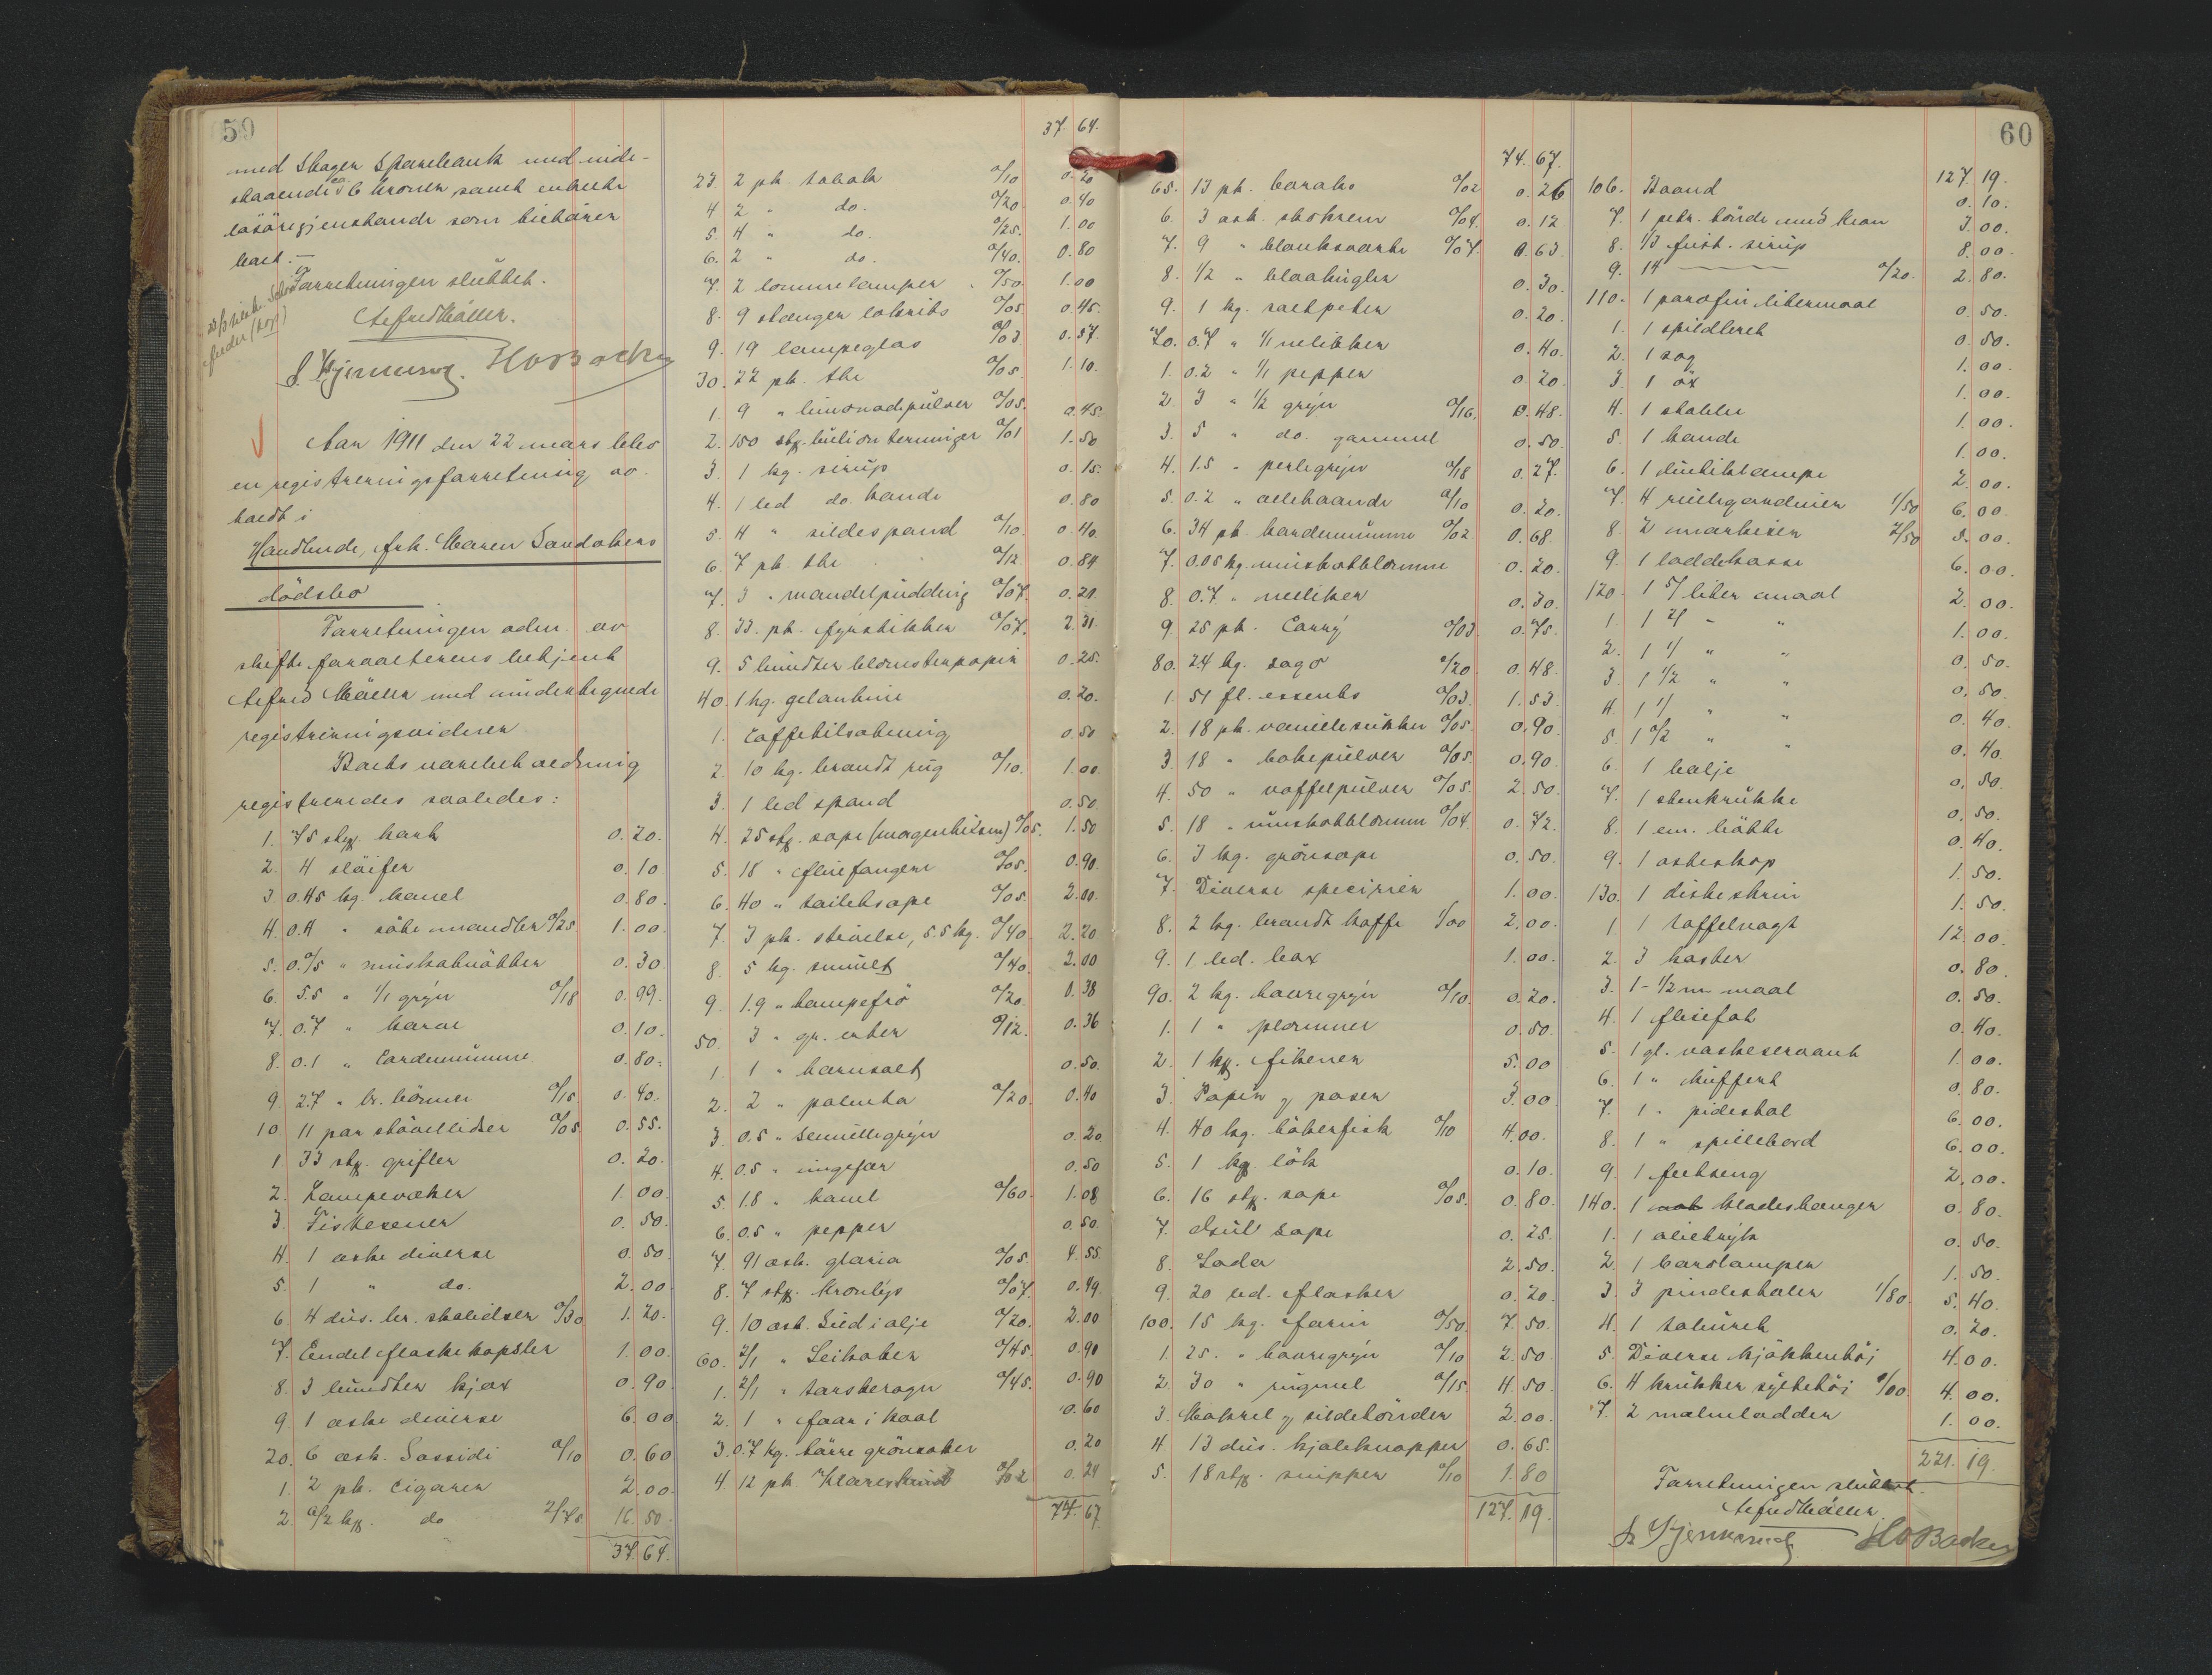 59
med Skagen Sparebank med inde-
staaende ca 6 kroner samt enkelte
løsøregjenstande som tilhører
boet.—
Forretningen sluttet.
Alfred Møller.
S. Hjermersen. H O Backer
Aar 1911 den 22 mars blev
en registreringsforretning av
holdt i
Handlende, frk. Maren Sandakers
dødsbo
Forretningen adm. av
skifteforvalterens betjent
Alfred Møller med undertegnede
registreringsvidner
Boets varebeholdning
registreredes saaledes:
1. 75 stk. kork 0.20.
2. 4 sløifer 0.10
3 0.45 kg. kanel 0.80.
4. 0.4 " søte mandler 0/25. 1.00.
5. 0.0/5 " muskatnøtter 0.30
6. 5.5 " 1/1 gryn 0/18 0.99.
7. 0.7 " karve 0.10.
8. 0.1 " Cardemumme 0.80.
9. 2.7 " br. bønner 0/15 0.40.
10. 11 par støvellidser 0/05. 0.55.
1. 33 stk. grifler 0.20.
2. Lampevæker 1.00.
3. Fiskesener 0.50.
4. 1 æske diverse 0.50.
5. 1 " do. 2.00.
6. 4 dus. br. skolidser 0/30 1.20.
7. Endel flaskekapsler 1.00.
8. 3 bundter kjæx 0.90.
9. 1 æske diverse 6.00
20. 6 æsk. Sossidi 0/10 0.60
1. 2 pk. Cigarer 2.00.
2. 0/2 ks. do 2/75 16.50.
37.64.
37.64.
23. 2 pk. tobak 0/10 0.20
4 2 " do. 0/20. 0.40
5. 4 " do. 0/25. 1.00
6. 2 " do. 0/40. 0.80
7. 2 lommelamper 0/50. 1.00
8. 9 stanger lakrits 0/05. 0.45.
9. 19 lampeglas 0/03. 0.57.
30. 22 pk. the 0/05. 1.10.
1. 9 " limonadepulver 0/05. 0.45.
2. 150 stk. buljonterninger 0/01 1.50
3 1 kg. sirup 0.15.
4. 1 led do. kande 0.80
5. 4 " sildespand 0/10. 0.40.
6. 7 pk. the 0/12 0.84
7. 3 " mandelpudding 0/07. 0.21.
8. 33. pk. fyrstikker 0/07. 2.31.
9. 5 bundter blomsterpapir 0.25.
40. 1 kg. gelantine 0.20.
1. Caffetilsætning 0.50
2. 10 kg. brændt rug 0/10. 1.00.
3. 1 led spand 0.50.
4. 25 stk. sæpe (magenbitzen) 0/05. 1.50
5. 18 " fluefangere 0/05. 0.90.
6. 40 " toiletsæpe 0/05. 2.00.
7. 3 pk. stivelse, 5.5 kg. 0/40. 2.20
8. 5 kg. smult 0/40. 2.00
9. 1.9 " hampefrø 0/20. 0.38
50. 3 " gr. erter 0/12. 0.36
1. 1 " kornsalt 0.50.
2. 2 " paleuta 0/20. 0.40
3. 0.5 " semullegryn 0.20
4. 0.5 " ingefær 0.50
5. 1.8 " kanel 0/60. 1.08
6. 0.5 " pepper 0.50.
7. 91 æsk. gloria 0/05. 4.55.
8. 7 stk. kronlys 0/07. 0.49.
9. 10 æsk. Sild i olje 0/20. 2.00
60. 2/1 " Seikaker 0/45. 0.90
1. 2/1 " torskerogn 0/45. 0.90
2. 1 " faar i kaal 0.60
3. 0.7 kg. tørre grønsaker 0.20
4. 12 pk. 0/02 0.24
74.67
60
74.67.
65. 13 pk. boraks 0/02 0.26
6. 3 æsk. skokrem 0/04. 0.12.
7. 9 " blanksværte 0/07. 0.63.
8. 1/2 " blaakugler 0.30.
9. 1 kg. saltpeter 0.20.
70. 0.7 " 1/1 nelikker 0.40.
1. 0.2 " 1/1 pepper 0.20.
2. 3 " 1/2 gryn 0/16. 0.48.
3. 5 " do. gammel 0.50.
4. 1.5 " perlegryn 0/18 0.27.
5. 0.2 " allehaande 0/10 0.20.
6. 34 pk. kardemumme 0/02. 0.68
7. 0.05 kg. muskatblomme 0.20.
8. 0.7 " nelliker 0.30.
9. 25 pk. Carry 0/03. 0.75.
80. 2.4 kg. sago 0/20 0.48.
1. 51 fl. essents 0/03. 1.53.
2. 18 pk. vanillesukker 0/05. 0.90.
3. 18 " bakepulver 0/05. 0.90.
4. 50 " vaffelpulver 0/05. 2.50.
5. 18 " muskatblomm 0/04. 0.72.
6. 3 kg. grønsæpe 0.50.
7. Diverse specerier 1.00.
8. 2 kg. brændt kaffe 1/00 2.00.
9. 1 led. lax 1.00.
90. 2 kg. havregryn 0/10. 0.20.
1. 1 " plommer 0.50.
2. 1 ks. fikener 5.00
3. Papir & poser 3.00
4. 40 kg. bøkerfisk 0/10 4.00.
5. 1 ks. løk 0.10.
6. 16 stk. sæpe 0/05. 0.80.
7. Asul sæpe 0.25.
8. Soda 2.50.
9. 20 led. flasker 0.20.
100. 15 kg. farin 0/50. 7.50.
1. 25. " havregryn 0/10 2.50
2. 30 " rugmel 0/15. 4.50
3. Makrel & sildetønder 2.00.
4. 13 dus. kjoleknapper 0.65.
5. 18 stk. snipper 0/10 1.80
127.19.
127.19.
106. Baand 0.10.
7. 1 petr. tønde med kran 3.00.
8. 1/3 fust. sirup 8.00.
9. 14 — 0/20. 2.80.
110. 1 parafin litermaal 0.50.
1. 1 spildbret 0.50.
2. 1 sag 1.00.
3. 1 øx 1.00.
4. 1 stabbe 1.00.
5. 1 kande 1.00.
6. 1 butiklampe 2.00.
7. 4 rullegardiner 1/50 6.00.
8. 2 markiser 2/50 5.00.
9. 1 laddekasse 6.00.
120. 1 5/ liter maal 2.00.
1. 1 2/ " " 1.00.
2. 1 1/ " " 0.50.
3. 1 1/2 " " 0.50.
4. 1 1/ " " 0.40.
5. 1 0/2 " " 0.40.
6. 1 balje 0.50.
7. 1 stenkrukke 0.50.
8. 1 em. bøtte 0.40.
9. 1 osteskap 1.50.
130. 1 diskeskrin 1.50.
1. 1 taffelvægt 12.00.
2. 3 kasker 0.80.
3. 1-1/2 m maal 0.50.
4. 1 flesefat 0.40.
5. 1 gl. vaskeservant 1.00.
6. 1 " kuffert 0.80.
7. 1 " pidestal 6.00.
8. 1 " spillebord 6.00.
9. 1 feltseng 2.00.
140. 1 klædeshænger 0.80.
1. 1 olietryk 0.50.
2. 1 bordlampe 1.50.
3. 3 pindestoler 1/80. 5.40.
4. 1 taburet 0.20.
5. Diverse kjøkkentøi 4.00.
6. 4 krukker syltetøi 1/00 4.00.
7. 2 malmlodder 1.00.
221.19.
Forretningen sluttet.
Alfred Møller.
S. Hjermersen H O Backer